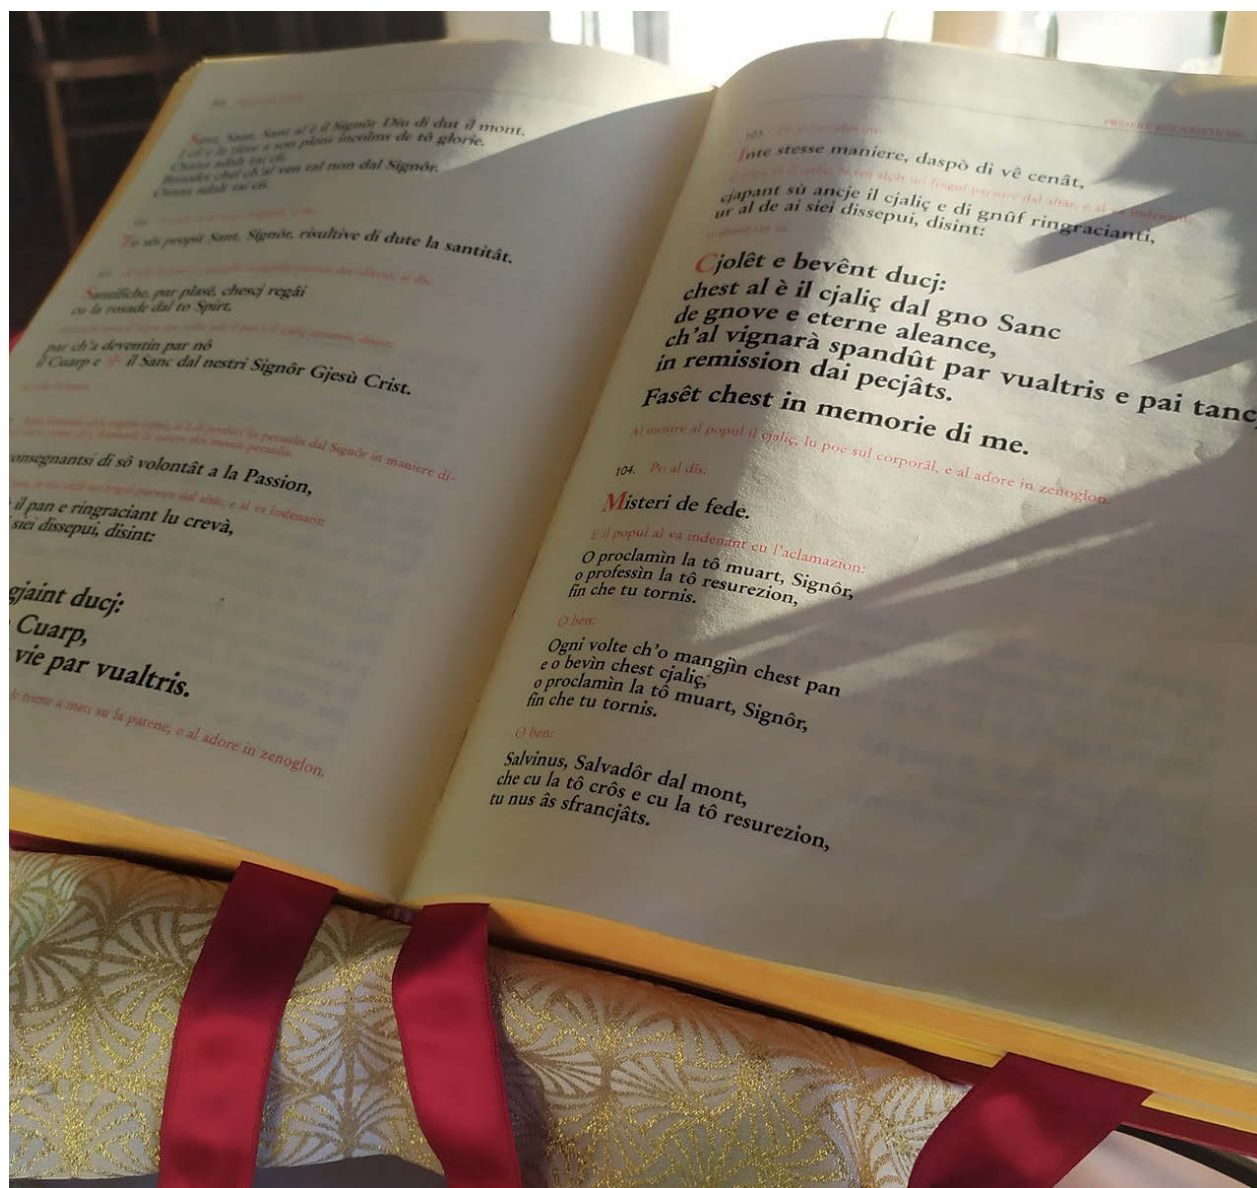 Sant, Sant, Sant al è il Signôr Diu di dut il mont.
I cîi e la tiere a son plens incolms de tô glorie.
Osana adalt tai cîi.
Benedet chel ch'al ven tal non dal Signôr.
Osana adalt tai cîi.
Tu sês propit Sant, Signôr, risultive di dute la santitât.
Santifiche, par plasê, chescj regâi
cu la rosade dal to Spirt,
par ch'a deventin par nô
il Cuarp e ✠ il Sanc dal nestri Signôr Gjesù Crist.
dal Signôr in maniere di-
consegnantsi di sô volontât a la Passion,
parsore dal altâr, e al va indenant:
il pan e ringraciant lu crevà,
siei dissepui, disint:
gjaint ducj:
Cuarp,
vie par vualtris.
su la patene, e al adore in zenoglon.
PREIERE EUCARISTICHE
103. Po al va indenant:
Inte stesse maniere, daspò di vê cenât,
al cjol il cjaliç, lu ten alçât un fregul parsore dal altâr, e al va indenant:
cjapant sù ancje il cjaliç e di gnûf ringracianti,
ur al de ai siei dissepui, disint:
Cjolêt e bevênt ducj:
chest al è il cjaliç dal gno Sanc
de gnove e eterne aleance,
ch'al vignarà spandût par vualtris e pai tanc
in remission dai pecjâts.
Fasêt chest in memorie di me.
Al mostre al popul il cjaliç, lu poe sul corporâl, e al adore in zenoglon.
104. Po al dîs:
Misteri de fede.
E il popul al va indenant cu l'aclamazion:
O proclamìn la tô muart, Signôr,
o professìn la tô resurezion,
fin che tu tornis.
O ben:
Ogni volte ch'o mangjìn chest pan
e o bevìn chest cjaliç,
o proclamìn la tô muart, Signôr,
fin che tu tornis.
O ben:
Salvinus, Salvadôr dal mont,
che cu la tô crôs e cu la tô resurezion,
tu nus âs sfrancjâts.